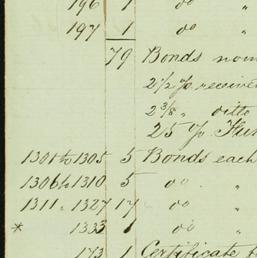 196 1 do "
197 1 do "
79 Bonds
2 1/2 %
2 3/8 " ditto
25 %
1301 to 1305 5 Bonds each
1306 to 1310 5 do "
1311 " 1327 17 do "
* 1333 1 do "
173 1 Certificate